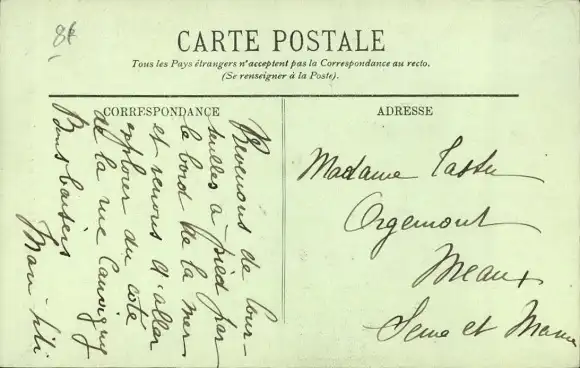 8f
CARTE POSTALE
Tous les Pays étrangers n'acceptent pas la Correspondance au recto.
(Se renseigner à la Poste).
CORRESPONDANCE
Revenons de Cour-
seulles à pied par
le bord de la mer
et venons d'aller
explorer du côté
de la rue Canvigny
Bons baisers
ADRESSE
Madame
Orgemont
Meaux
Seine et Marne